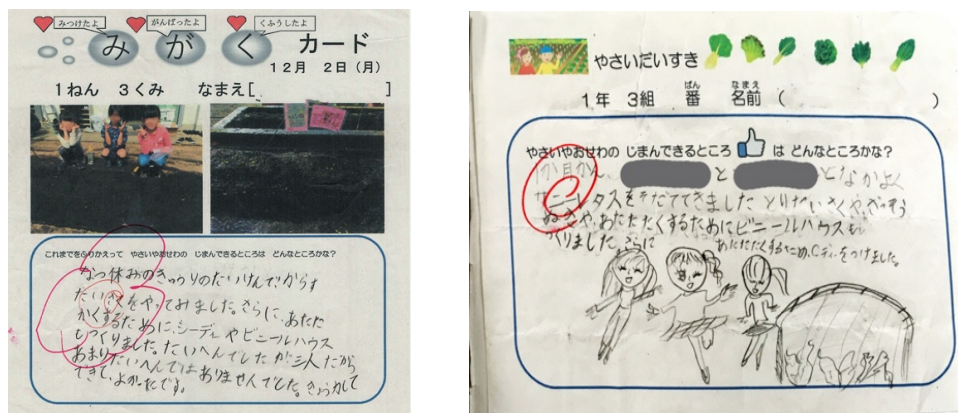 みつけたよ
がんばったよ
くふうしたよ
みがく カード
12月 2日(月)
1ねん 3くみ なまえ[ ]
これまでをふりかえって やさいやおせわの じまんできるところは どんなところかな?
なつ休みのきゅうりのたいけんでからす
たいさくをやってみました。さらに、あたた
かくするために、シーディやビニールハウス
もつくりました。たいへんでしたが三人だから
あまりたいへんではありませんでした。きょうかして
できて、よかったです。
やさいだいすき
1年 3組 番 名前 ( )
ばん なまえ
やさいやおせわの じまんできるところ は どんなところかな?
1か月かん、 と となかよく
サニーレタスをそだててきました とりたいさくや、ざっそう
ぬきや、あたたたくするためにビニールハウスも
つくりました。さらに あたたたくするため、Cディーをつけました。